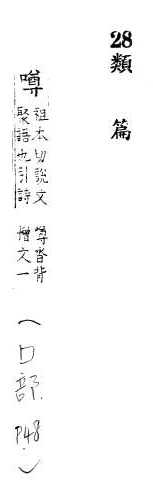 28類篇
噂
祖本切說文
聚語也引詩
尊沓背
憎文一
(口部 P48.)